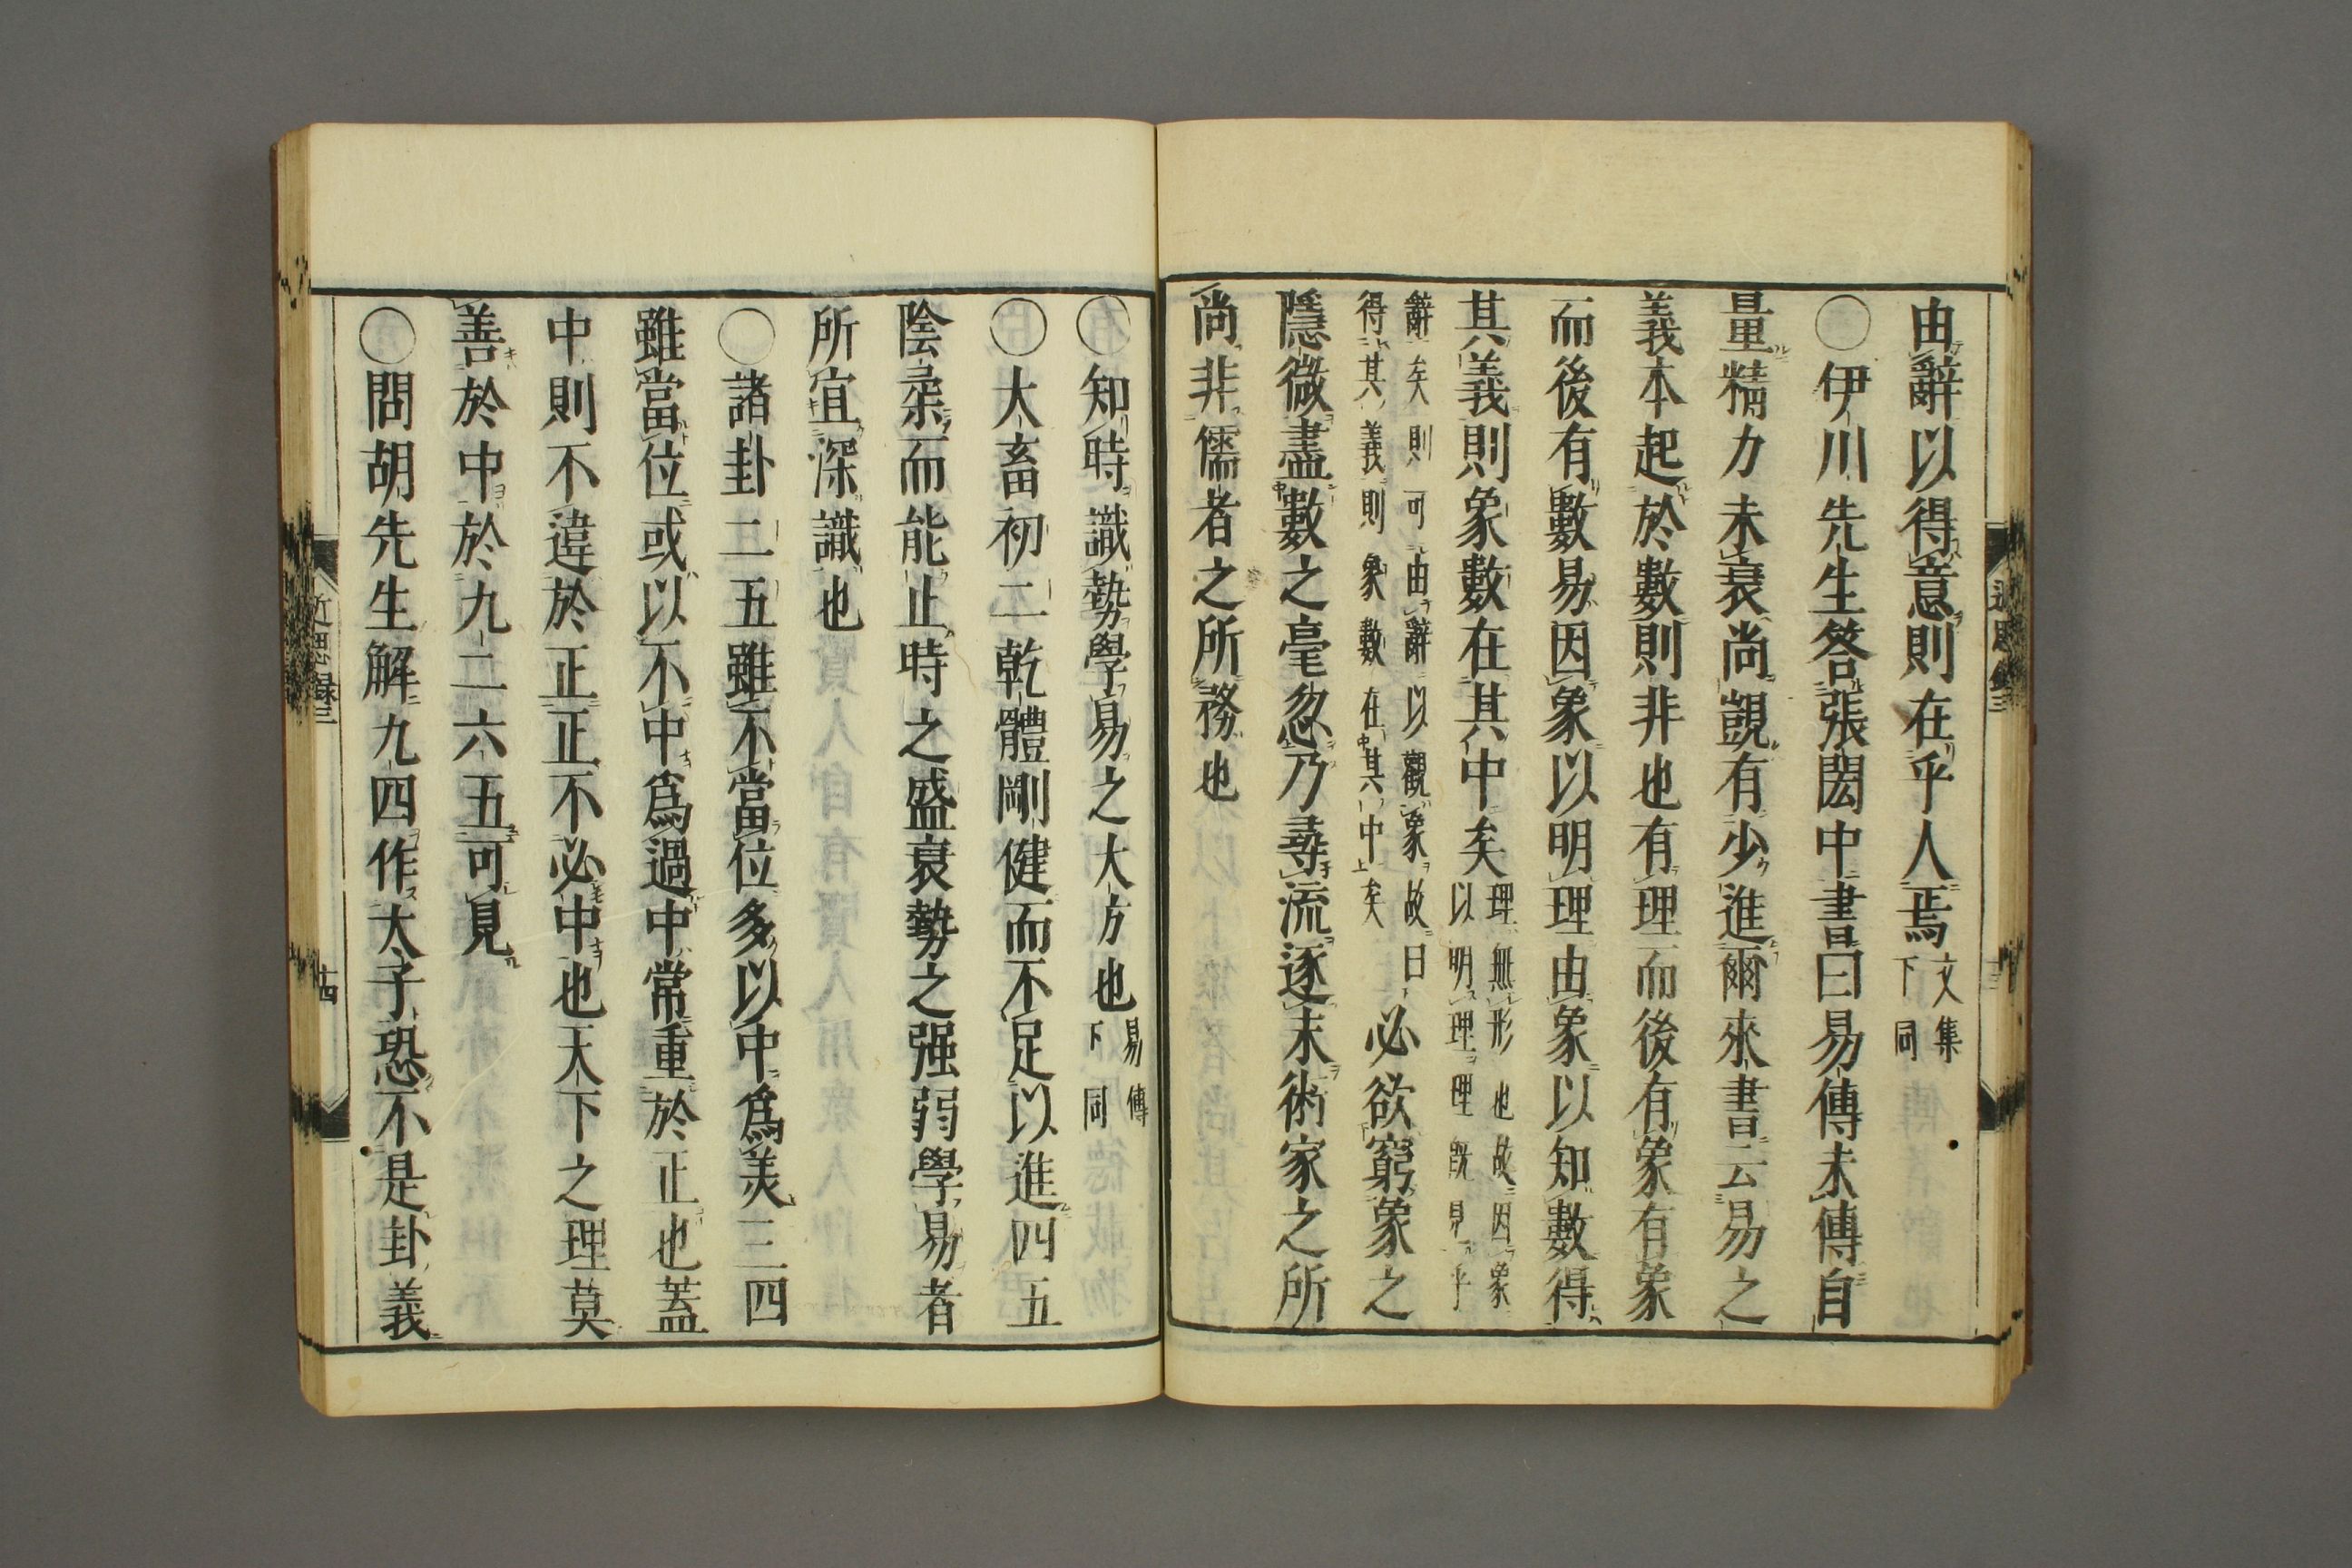 由辭以得意則在乎人焉文集下同
○伊川先生答張閎中書曰易傳未傳自
量精力未衰尚覬有少進爾來書云易之
義本起於數則非也有理而後有象有象
而後有數易因象以明理由象以知數得
其義則象數在其中矣理無形也故因象以明理理既見乎
辭矣則可由辭以觀象故曰得其義則象數在其中矣必欲窮象之
隱微盡數之毫忽乃尋流逐末術家之所
尚非儒者之所務也
○知時識勢學易之大方也易傳下同
○大畜初二乾體剛健而不足以進四五
陰柔而能止時之盛衰勢之强弱學易者
所宜深識也
○諸卦二五雖不當位多以中爲美三四
雖當位或以不中爲過中常重於正也蓋
中則不違於正正不必中也天下之理莫
善於中於九二六五可見
○問胡先生解九四作太子恐不是卦義
近思録三
十四